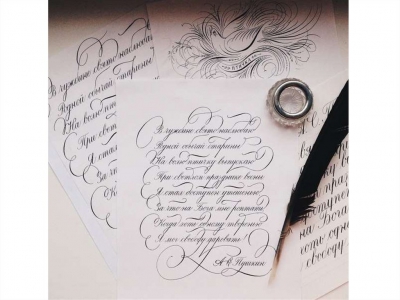 В чужбине свято наблюдаю
Родной обычай старины
На волю птичку выпускаю
При светлом празднике весны
Я стал доступен утешению
За что на Бога мне роптать
Когда хоть одному творенью
Я мог свободу даровать
А. С. Пушкин
В чужбине свято наблюдаю
Родной обычай старины
На волю
При
Я стал
За
на Бога
свободу